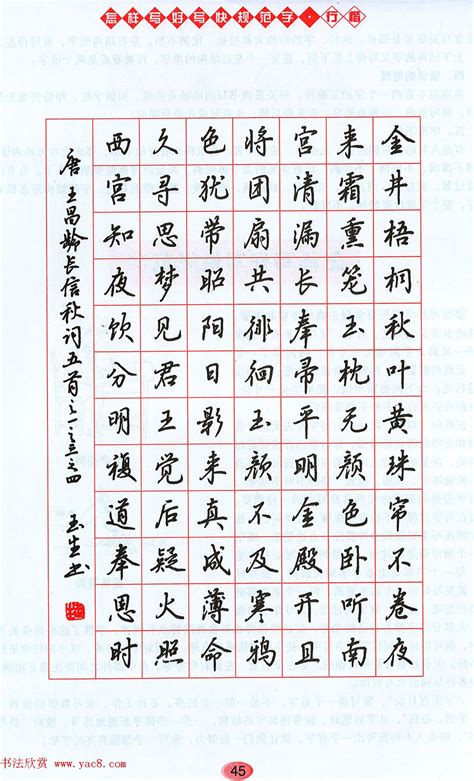 怎样写好写快规范字·行楷
金井梧桐秋叶黄珠帘不卷夜
来霜熏笼玉枕无颜色卧听南
宫清漏长奉帚平明金殿开且
将团扇共徘徊玉颜不及寒鸦
色犹带昭阳日影来真成薄命
久寻思梦见君王觉后疑火照
西宫知夜饮分明複道奉恩时
唐王昌龄长信秋词五首之一之三之四 玉生书
45
书法欣赏 www.yac8.com